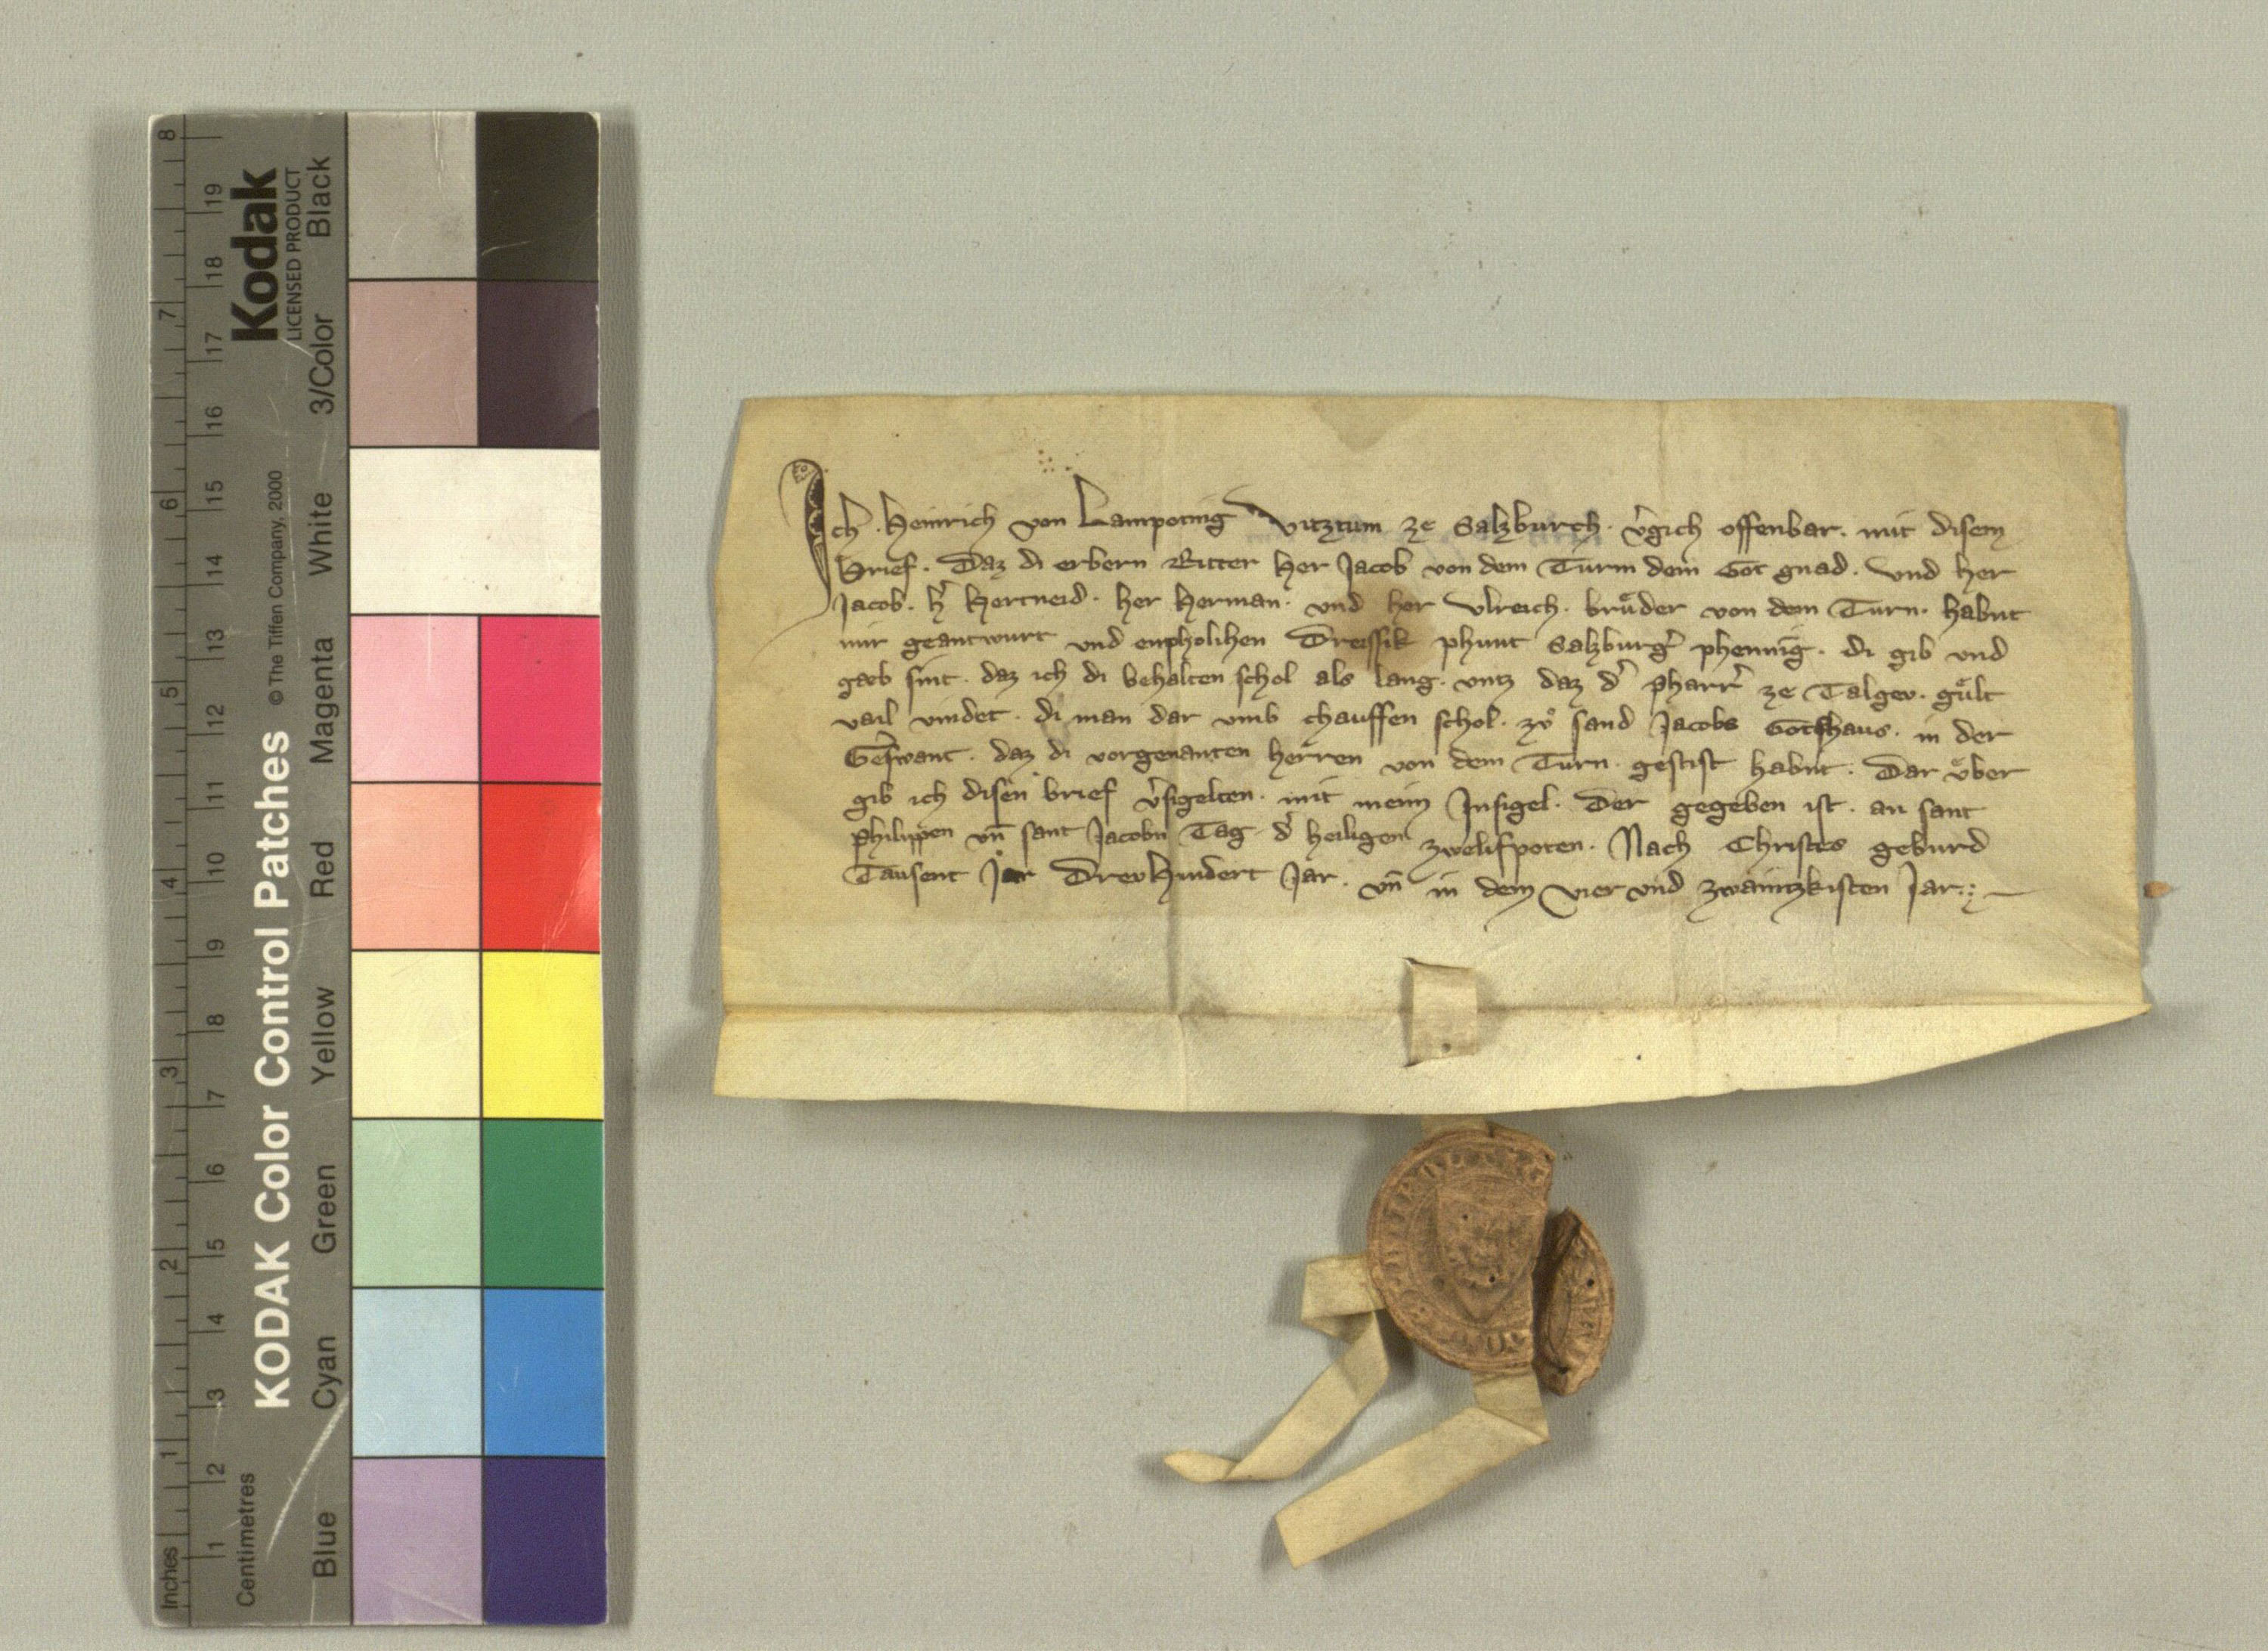 Ich · Heinrich von Lampoting Vitztum ze Salzburch · v̓gich offenbar · mit disem
brief · Daz di erbern Ritter her Jacob von dem Turm dem Got gnad · Vnd her
Jacob · h̓ Hertneid · her Herman · vnd her Vlreich · bruͤder von dem Turn · habnt
mir geantwurt vnd enpholihen Dreissik phunt Salzburg̓ phennig · di gib vnd
gæb sint · daz ich di behalten schol als lang · vntz daz d̓ pharr̓ ze Talgev · guͤlt
vail vindet · di man dar vmb chauffen schol · zvͦ sand Jacobs Gotshaus · in der
Ge̓swant · daz di vorgenanten herren von dem Turn · gestift habnt · Dar vͤber
gib ich disen brief v̓sigelten · mit meim Insigel · Der gegeben ist · an sant
Philippen vn̄ sant Jacobn Tag · d̓ heiligen zwelifpoten · Nach Christes geburd
Tausent Jar Drevhundert Jar · vn̄ in dem vier vnd zwaintzkisten Jar
Kodak
LICENSED PRODUCT
KODAK Color Control Patches © The Tiffen Company, 2000
Blue Cyan Green Yellow Red Magenta White 3/Color Black
Inches 1 2 3 4 5 6 7 8
Centimetres 1 2 3 4 5 6 7 8 9 10 11 12 13 14 15 16 17 18 19